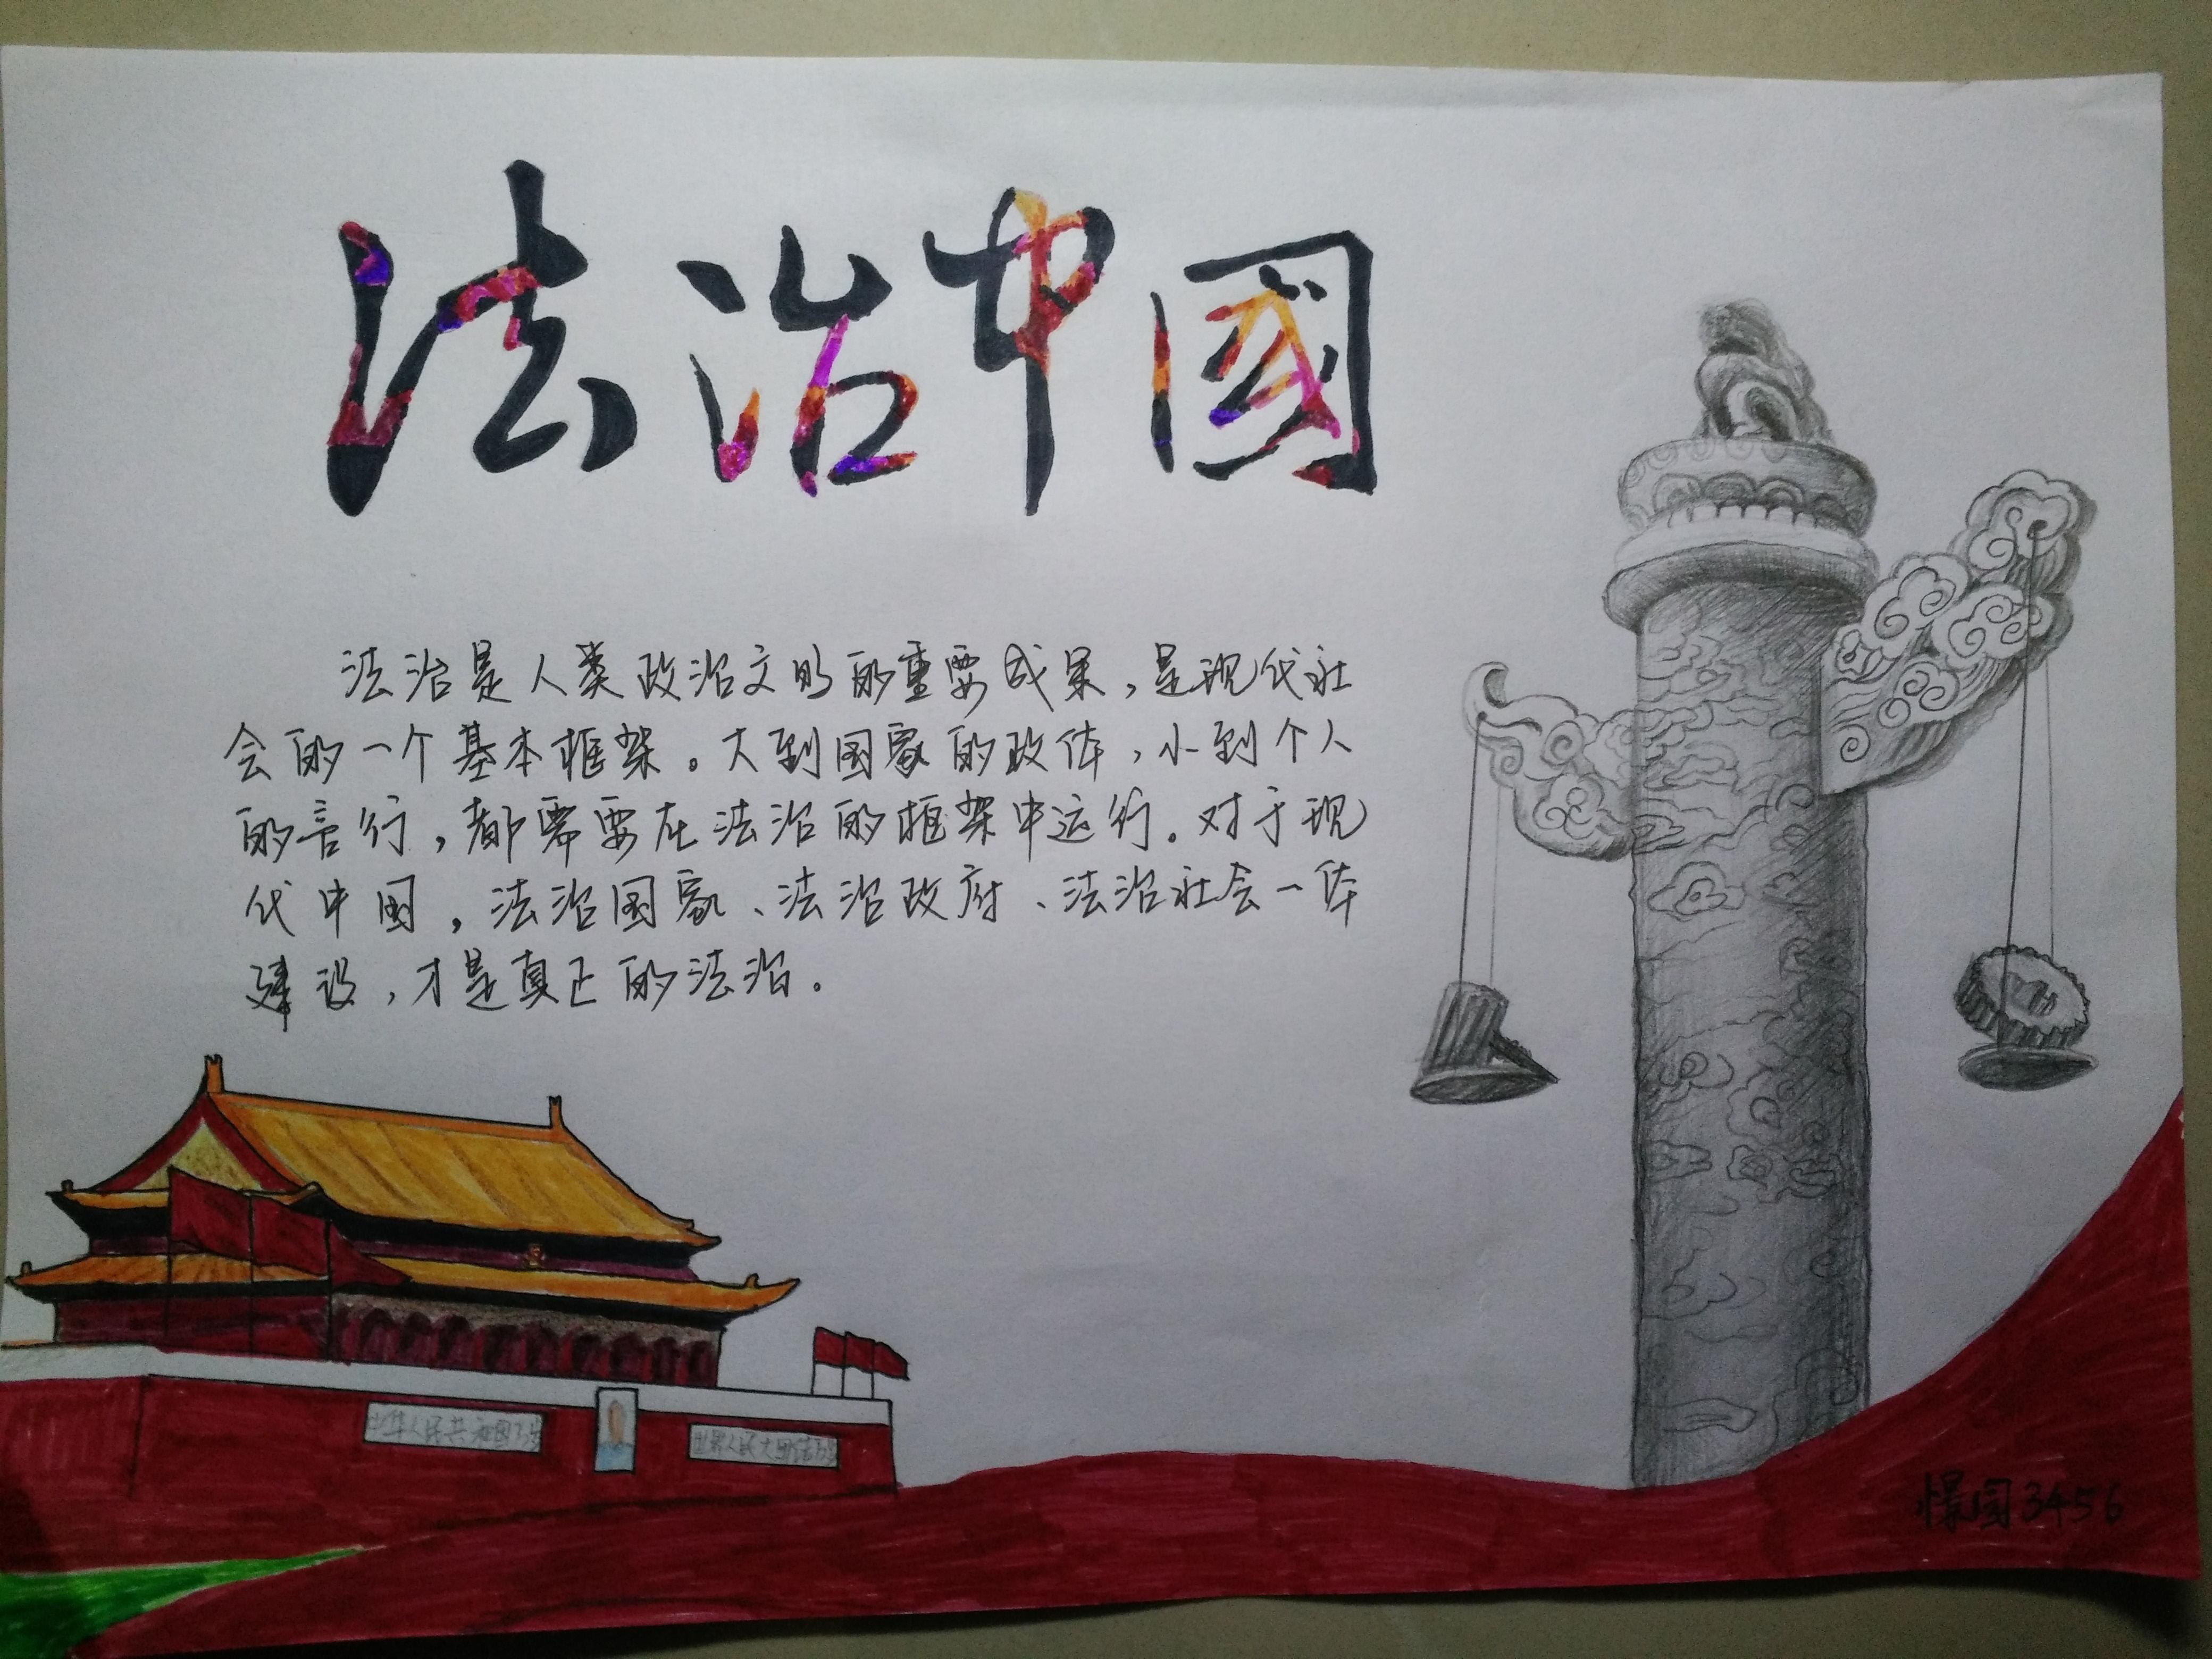 法治中國
法治是人类政治文明的重要成果，是现代社
会的一个基本框架。大到国家的政体，小到个人
的言行，都需要在法治的框架中运行。对于现
代中国，法治国家、法治政府、法治社会一体
建设，才是真正的法治。
中华人民共和国万岁
世界人民大团结万岁
憬园3456